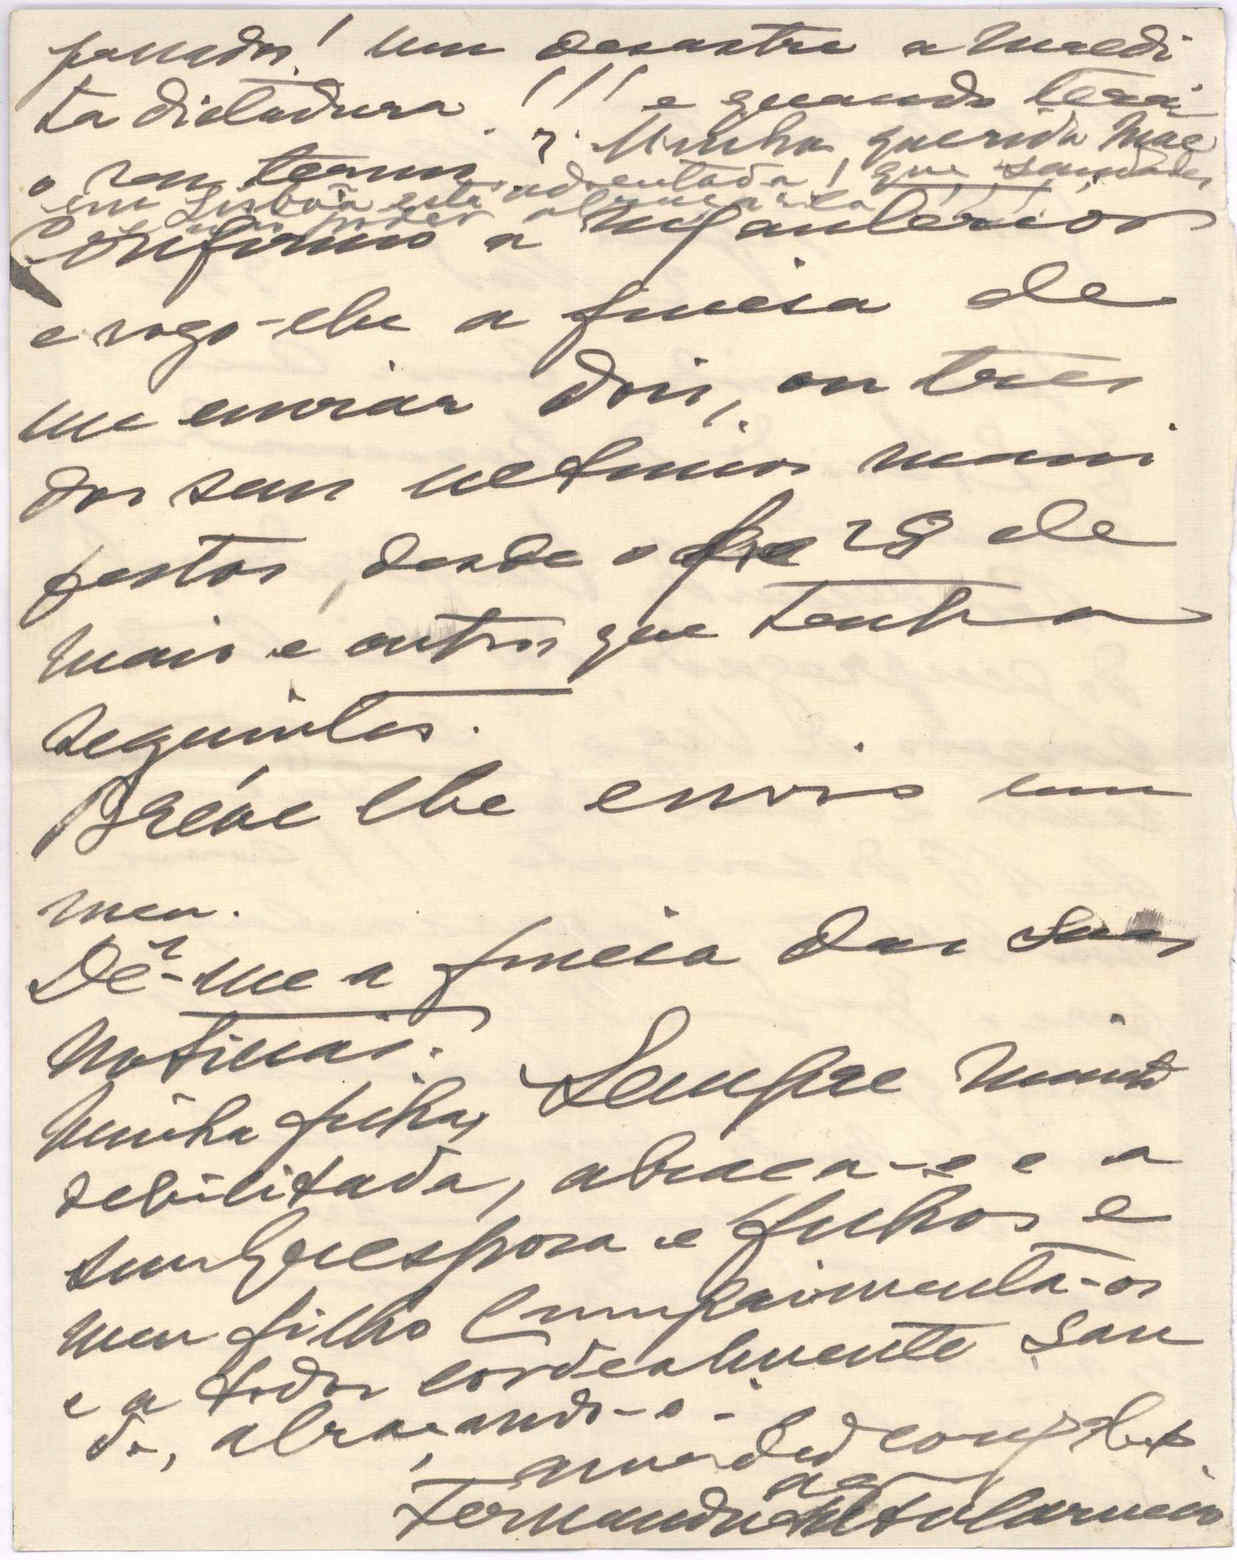 passados! um desastre a maldi
ta dictadura !!! e quando terá
o seu termo? Minha querida Mãe
em Lisbôa está adoentada, que saudades
e não poder abraçal-a
Confirmo a m/ anterior
e rogo-lhe a fineza de
me enviar dois, ou tres
dos seus ultimos mani
festos, desde o de 28 de
Maio e outros que tenha
seguintes.
Bréve lhe envio um
meu.
Dê-me a fineza das suas
noticias.
Minha filha, sempre muito
debilitada, abraça-o e a
sua Ex. esposa e filhos e
meu filho cumprimenta-os
e a todos cordealmente sau
do, abraçando-o.
am. ded
Fernando